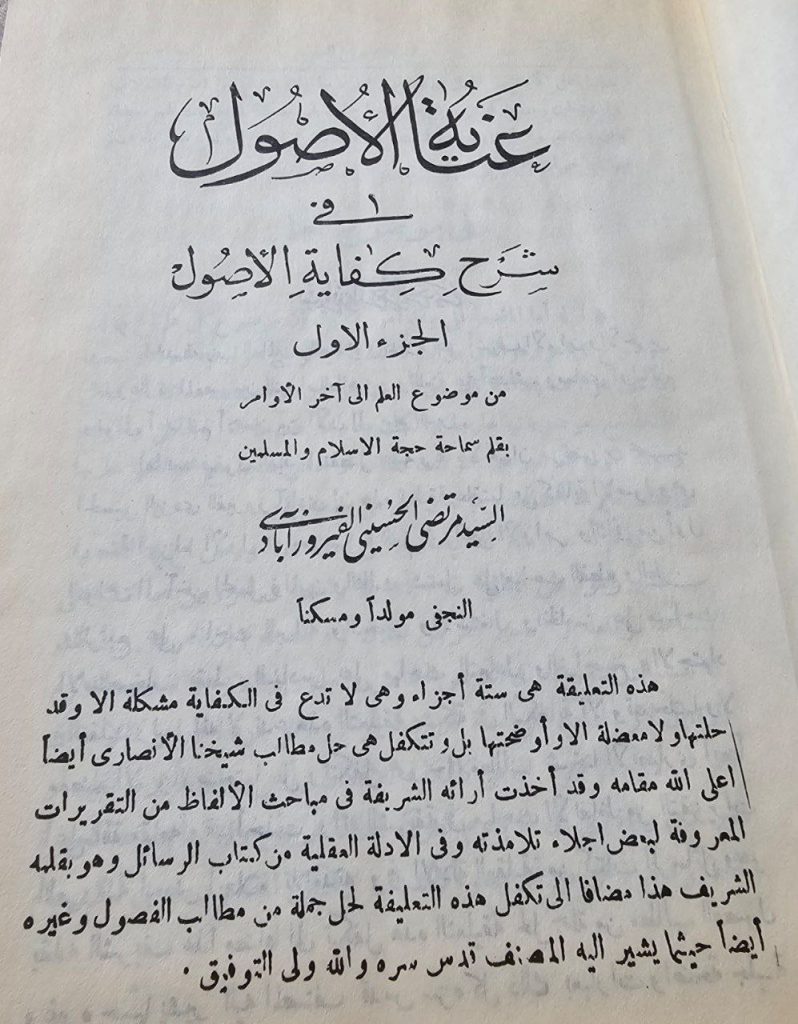 عناية الأصول
١ في
شرح كفاية الأصول
الجزء الاول
من موضوع العلم الى آخر الاوامر
بقلم سماحة حجة الاسلام والمسلمين
السيد مرتضى الحسيني الفيروزآبادي
النجفى مولداً ومسكناً
هذه التعليقة هى ستة أجزاء وهى لا تدع فى الكفاية مشكلة الا وقد
حلتها ولا معضلة الا وأوضحتها بل وتتكفل هى حل مطالب شيخنا الأنصارى أيضاً
اعلى الله مقامه وقد أخذت أرائه الشريفة فى مباحث الالفاظ من التقريرات
المعروفة لبعض اجلاء تلامذته وفى الادلة العقلية من كتاب الرسائل وهو بقلمه
الشريف هذا مضافا الى تكفل هذه التعليقة لحل جملة من مطالب الفصول وغيره
أيضاً حيثما يشير اليه المصنف قدس سره والله ولى التوفيق .